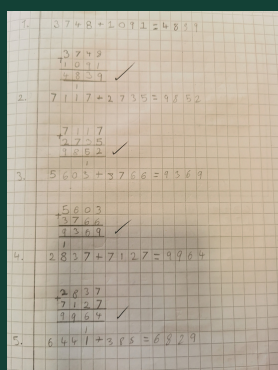 1. 3748+1091=4839
3748
+1091
4839
1
2. 7117+2735=9852
7117
+2735
9852
1
3. 5603+3766=9369
5603
+3766
9369
1
4. 2837+7127=9964
2837
+7127
9964
1
5. 6441+388=6829